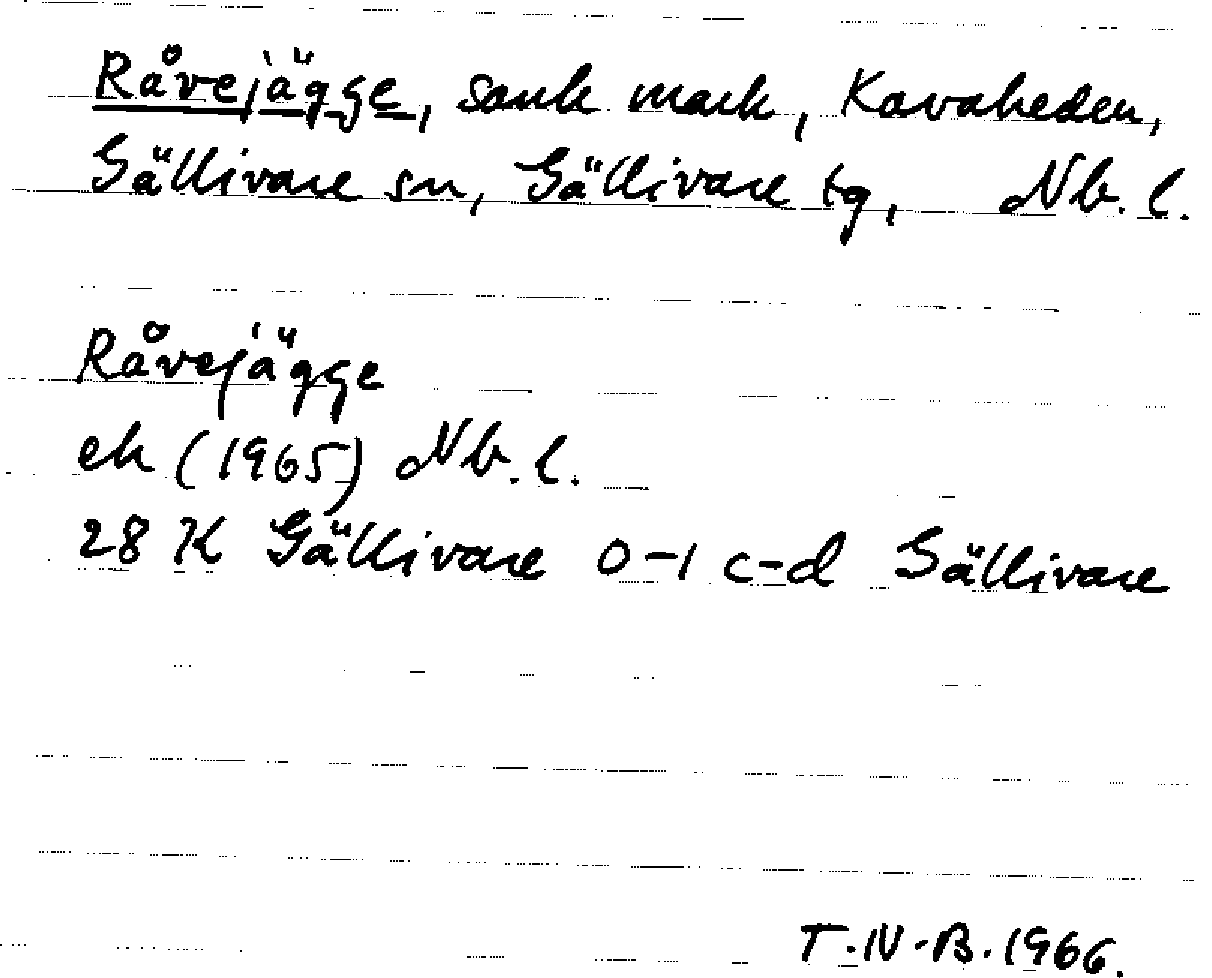 Råvejägge, sank mark, Kavaheden,
Gällivare sn, Gällivare tg, Nb. l.
Råvejägge
ek (1965) Nb. l.
28 K Gällivare 0-1 c-d Gällivare
T.N-B. 1966.